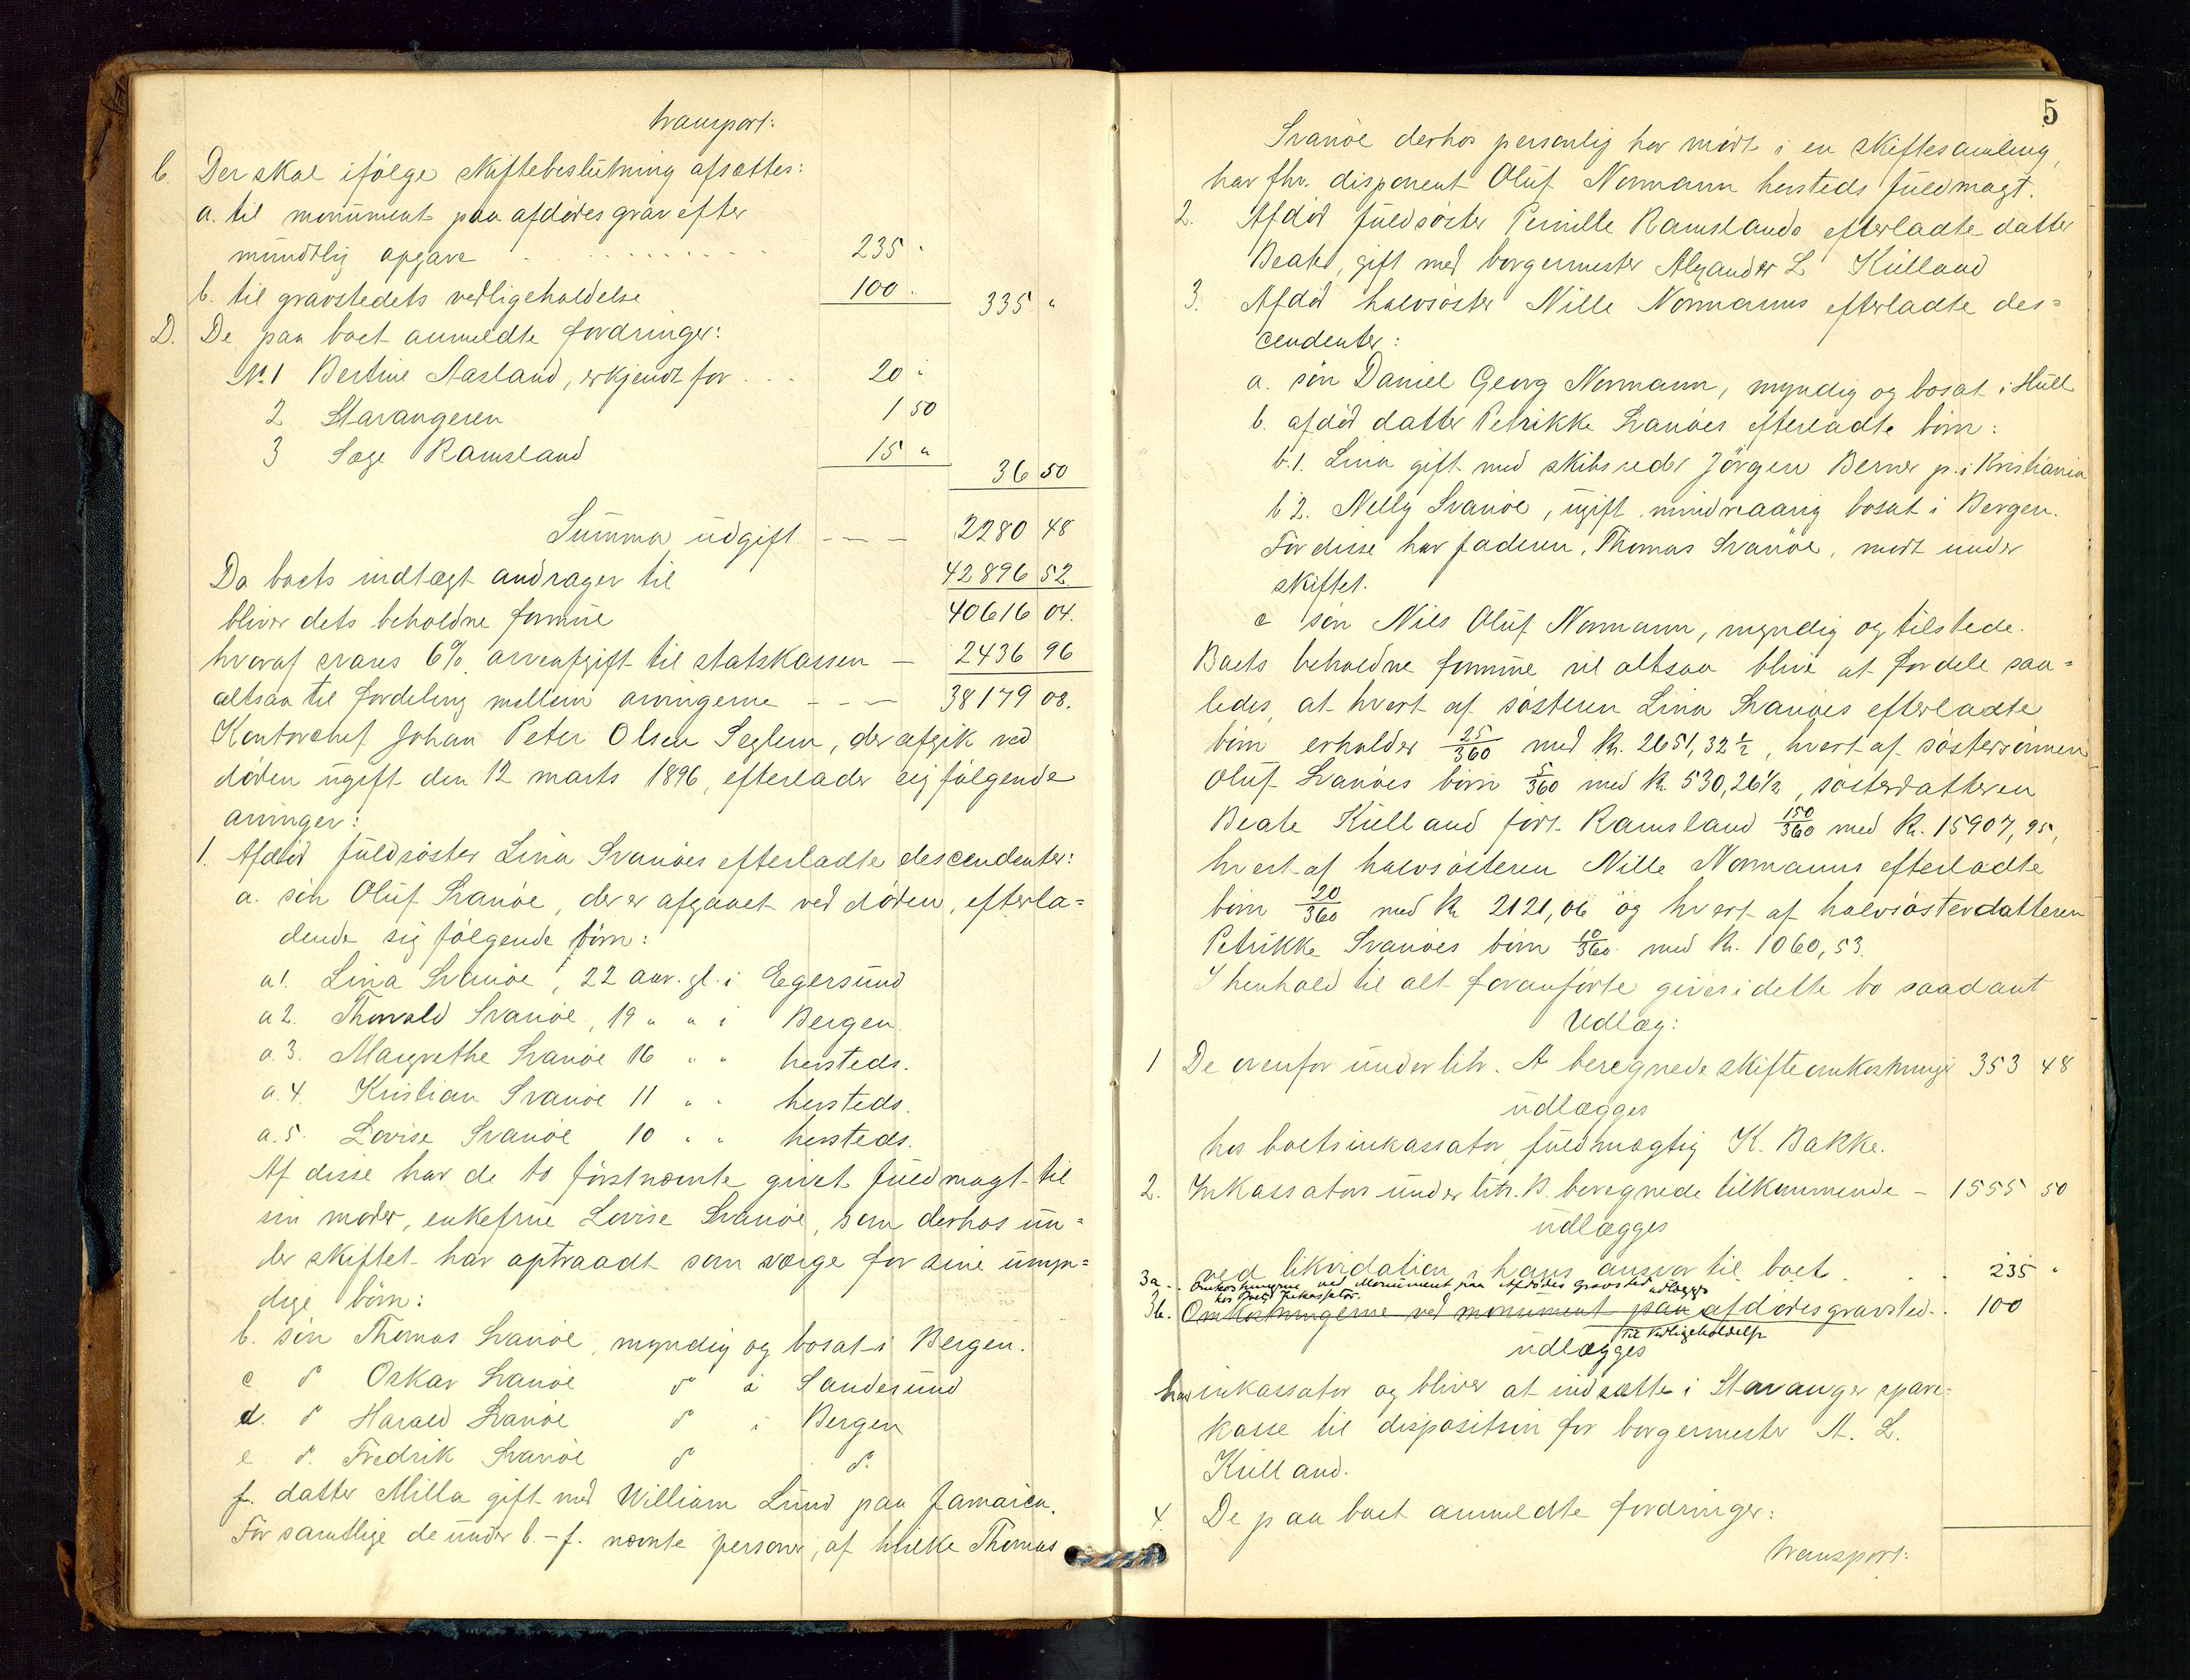 transport:
C. Der skal ifølge skiftebeslutning afsættes:
a. til monument paa afdødes grav efter
mundtlig opgave . . . . . . . . . . 235 "
b. til gravstedets vedligeholdelse 100 . 335 "
D. De paa boet anmeldte fordringer:
No. 1 Bertine Aasland, erkjendt for . . . 20 "
2 Stavangeren 1 50
3 Sage Ramsland 15 "
36 50
Summa udgift - - - 2280 48
Da boets indtægt andrager til 42896 52
bliver dets beholdne formue 40616 04.
hvoraf svares 6% arveafgift til statskassen - 2436 96
altsaa til fordeling mellem arvingerne - - - 38179 08.
Kontorchef Johan Peter Olsen Seglem, der afgik ved
døden ugift den 12 marts 1896, efterlader sig følgende
arvinger:
1. Afdød fuldsøster Lina Svanøes efterladte descendenter:
a. søn Oluf Svanøe, der er afgaaet ved døden, efterla=
dende sig følgende børn:
a1. Lina Svanøe, 22 aar. gl. i Egersund
a2. Thorvald Svanøe, 19 " " i Bergen.
a.3. Margrethe Svanøe 16 " " hersteds.
a.4. Kristian Svanøe 11 " " hersteds.
a.5. Lovise Svanøe 10 " " hersteds.
Af disse har de to førstnævnte givet fuldmagt til
sin moder, enkefrue Lovise Svanøe, som derhos un=
der skiftet har optraadt som værge for sine umyn=
dige børn:
b. søn Thomas Svanøe, myndig og bosat i Bergen.
c do Oskar Svanøe do i Sandesund
d. do Harald Svanøe do i Bergen
e do. Fredrik Svanøe do do.
f. datter Milla gift med William Lund paa Jamaica.
For samtlige de under b.-f. nævnte personer, af hvilke Thomas
5
Svanøe derhos personlig har mødt i en skiftesamling,
har fhv. disponent Oluf Normann hersteds fuldmagt.
2. Afdød fuldsøster Pernille Ramslands efterladte datter
Beate, gift med borgermester Alexander L Kielland
3. Afdød halvsøster Nille Normanns efterladte des=
cendenter:
a. søn Daniel Georg Normann, myndig og bosat i Hull
b. afdød datter Petrikke Svanøes efterladte børn:
b.1. Lina gift med skibsreder Jörgen Berner p. i Kristiania
b 2. Nelly Svanøe, ugift, mindreaarig bosat i Bergen.
For disse har faderen, Thomas Svanøe, mødt under
skiftet.
c søn Nils Oluf Normann, myndig og tilstede.
Boets beholdne formue vil altsaa blive at fordele saa=
ledes, at hvert af søsteren Lina Svanøes efterladte
børn erholder 25/360 med Kr. 2651,32 1/2, hvert af søstersønnen
Oluf Svanøes børn 5/360 med Kr. 530,26 1/2, søsterdatteren
Beate Kielland født Ramsland 150/360 med Kr. 15907,95,
hvert af halvsøsteren Nille Normanns efterladte
børn 20/360 med Kr 2121,06 og hvert af halvsøsterdatteren
Petrikke Svanøes børn 10/360 med Kr. 1060,53.
I henhold til alt foranførte gives i dette bo saadant
Udlæg:
1 De ovenfor under litr. A beregnede skifteomkostninger 353 48
udlægges
hos boets inkassator, fuldmægtig K. Bakke.
2. Inkassators under litr. B. beregnede tilkommende - 1555 50
udlægges
ved likvidation i hans ansvar til boet.
3a. Omkostningerne ved Monument paa Afdødes Gravsted udlægges . . 235 "
hos Boets Inkassator.
3b. Omkostningerne ved monument paa afdødes gravsted. . 100
til Vedligeholdelse
udlægges
hos inkassator og bliver at indsætte i Stavanger spare=
kasse til disposition for borgermester A. L.
Kielland.
4. De paa boet anmeldte fordringer:
transport: